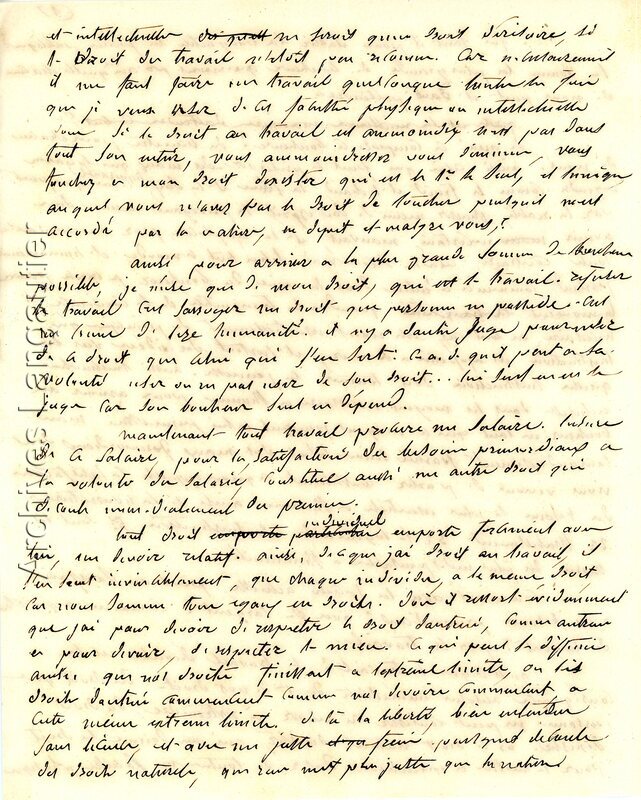 et intellectuelles ne serait qu'un droit dérisoire, si
le Droit du travail n'était pas reconnu. Car naturellement
il me faut faire un travail quelconque
que je veux user de ces facultés physique ou intellectuelle
donc si le droit au travail est ammoindri n'est pas dans
tout son entier, vous ammoindrissez vous diminuez, vous
touchez à mon droit d'exister qui est le 1er le seul, et unique
auquel vous n'avez pas le droit de toucher puisqu'il m'est
accordé par la nature, en dépit et malgré vous,!
ainsi pour arriver a la plus grande somme de bonheur
possible, je n'use que de mon droit, qui est le travail. refuser
le travail c'est un droit que personne ne possède. c'est
un crime de lèse humanité. il n'y a d'autre juge pour user
de ce droit que celui qui s'en sert. C. a. d. qu'il peut a sa
volonté user ou ne pas user de son droit... lui seul en est le
juge car son bonheur seul en dépend.
maintenant tout travail procure un salaire.
de ce salaire, pour la satisfaction des besoins primordiaux a
la volonté du salarié constitue aussi un autre droit qui
découle immédiatement du premier.
tout droit individuel emporte forcément avec
lui, un devoir relatif. ainsi, de ce que j'ai droit au travail, il
s'en suit invinciblement, que chaque individu, a le meme droit
car nous sommes tous egaux en droits. D'où il ressort évidemment
que j'ai pour devoir de respecter le droit d'autrui, comme autrui
a pour devoir, de respecter le mien. Ce qui peut se définir
ainsi: que nos droits finissent a l'extrême limite, ou les
droits d'autrui commencent comme nos devoirs commencent, a
cette même extrême limite. de là la liberté, bien entendue
sans licence, et avec un juste frein
des droits naturels, que rien n'est plus juste que la nature
Archives Lancoutier